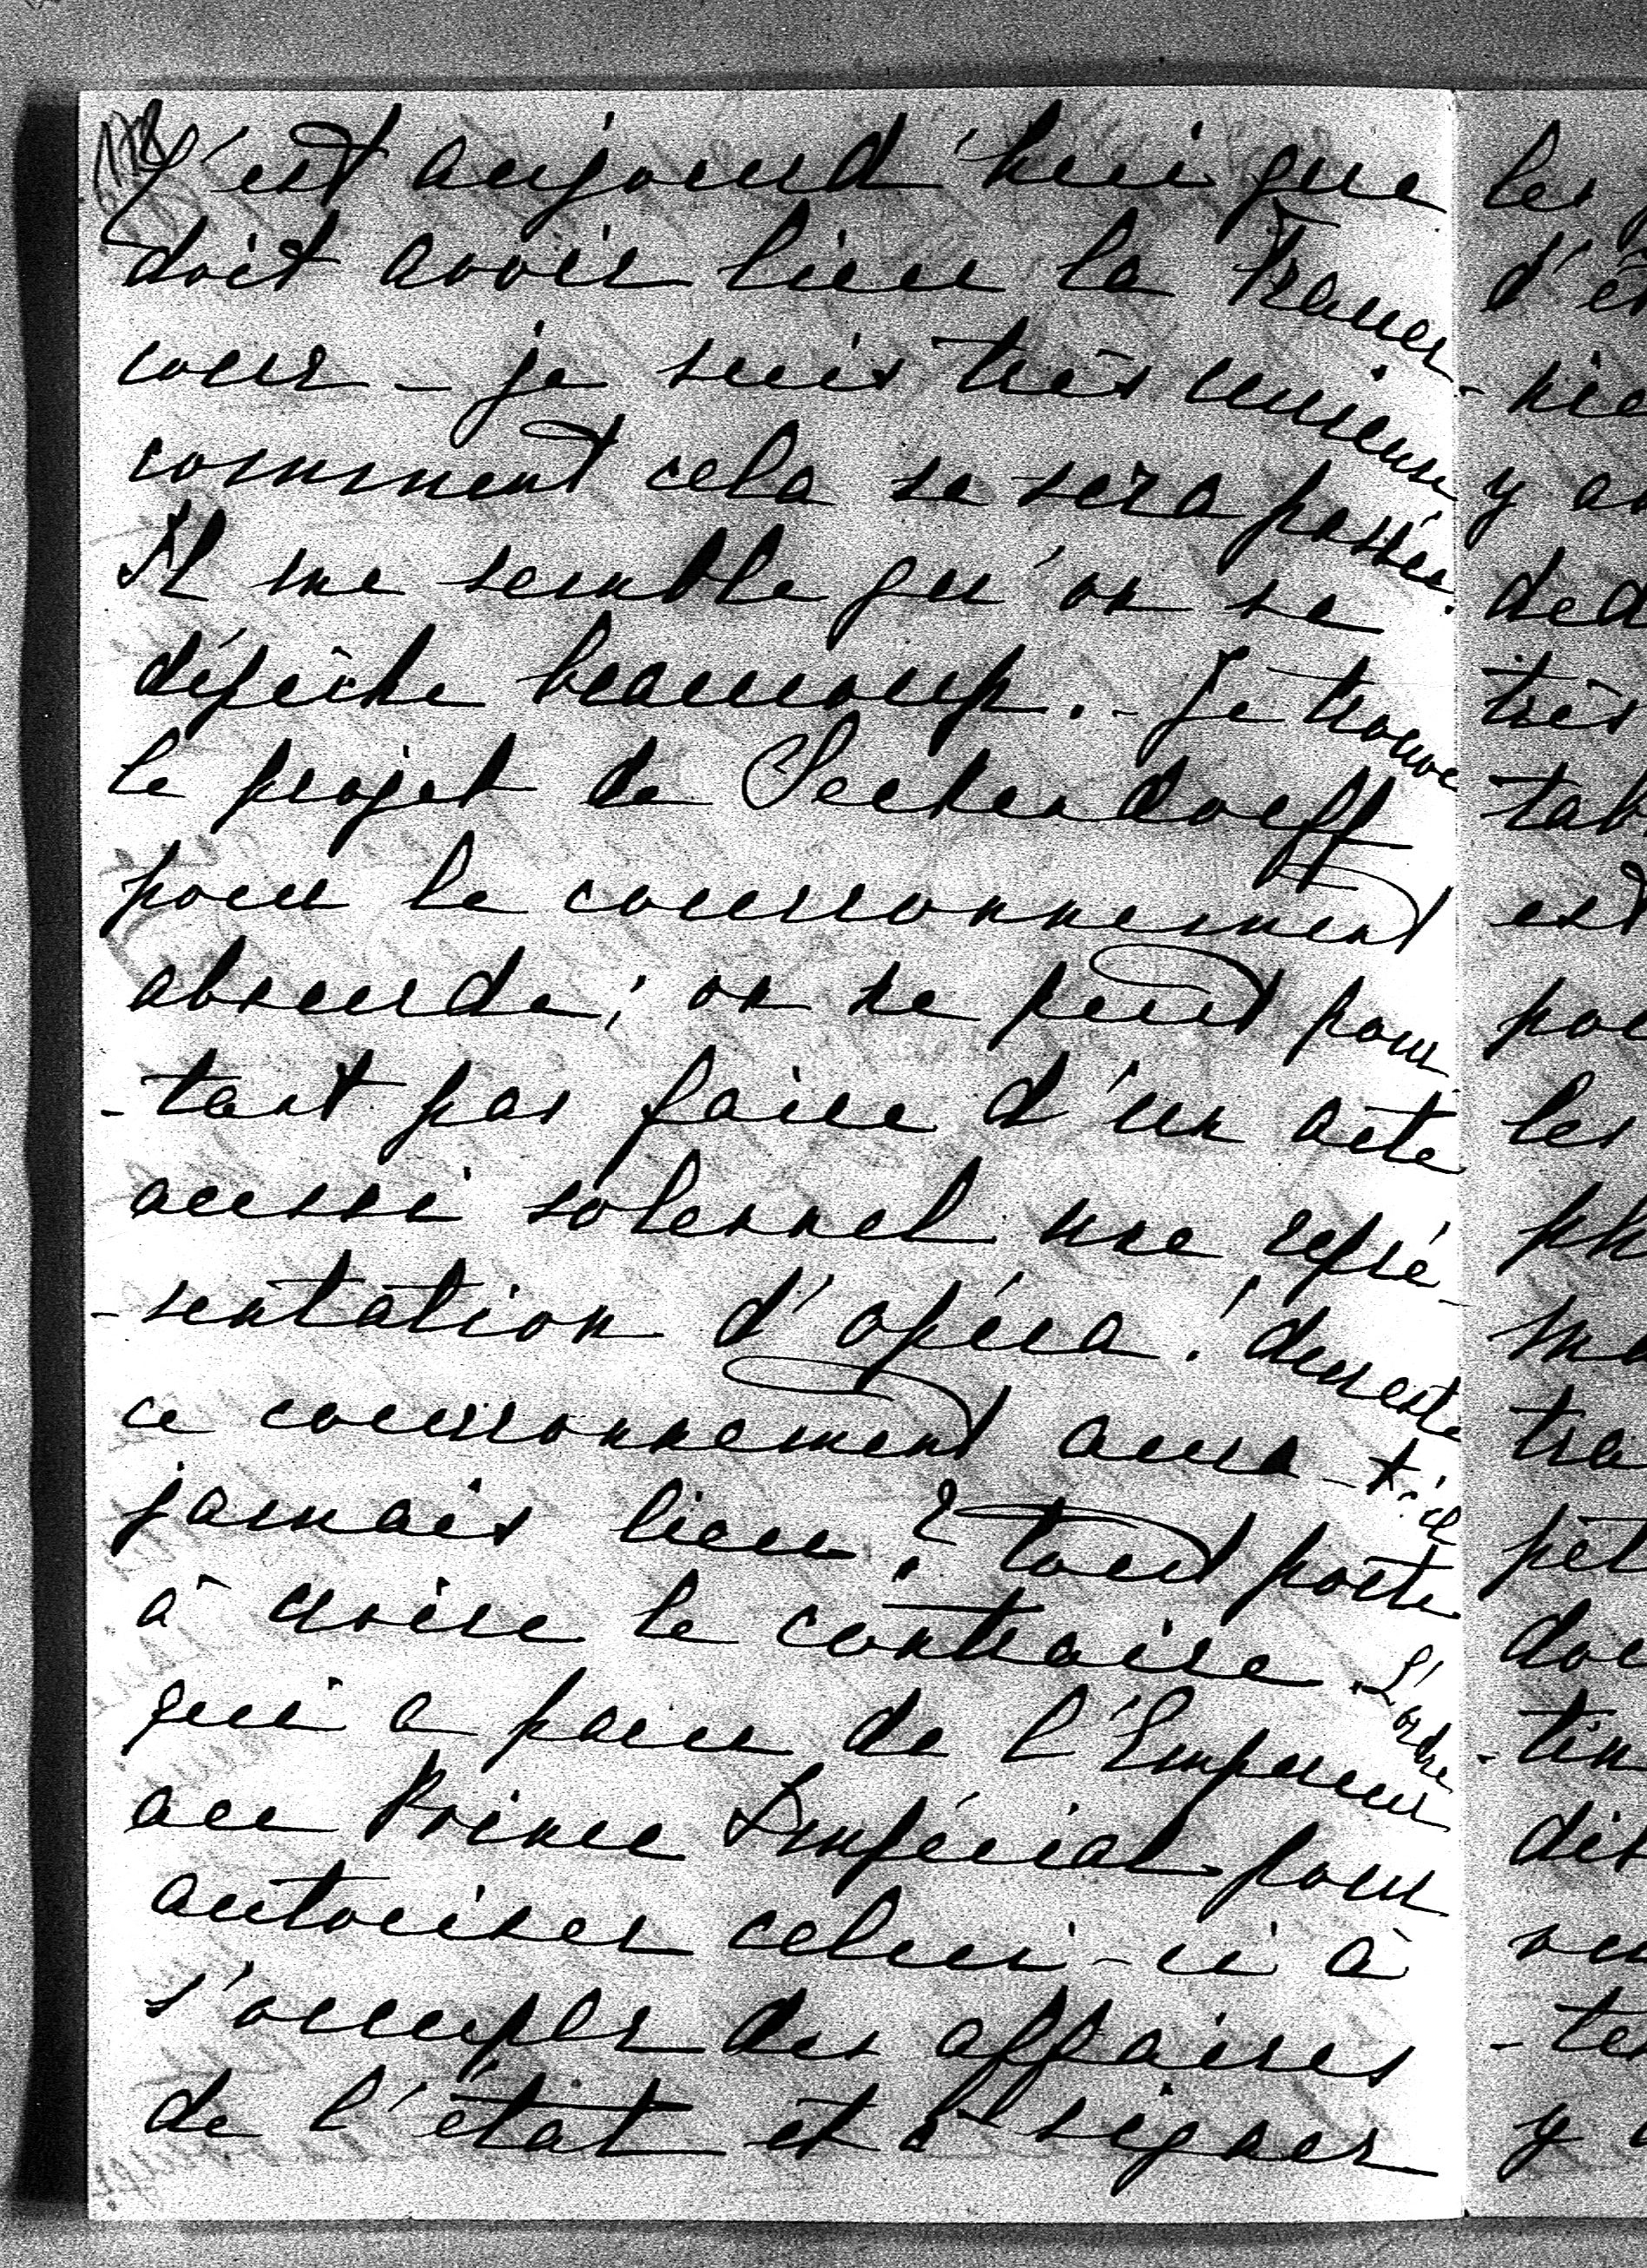 178
C'est aujourd'hui que
doit avoir lieu la Trauer-
cour - je suis très curieuse
comment cela se sera passée.
Il me semble qu'on se
dépêche beaucoup. - Je trouve
le projet de Seckendorff
pour le courronnement
absurde; on ne peut pour
-tant pas faire d'un acte
aussi solennel une repré-
-sentation d'opéra! du reste
ce courronnement aura-t-il
jamais lieu? tout porte
à croire le contraire. L'ordre
qui a paru de l'Empereur
au Prince Impérial pour
autoriser celui-ci à
s'occuper des affaires
de l'état et à signer
les
d'
y
ded
très
tab
est
po
les
tra
dis
y